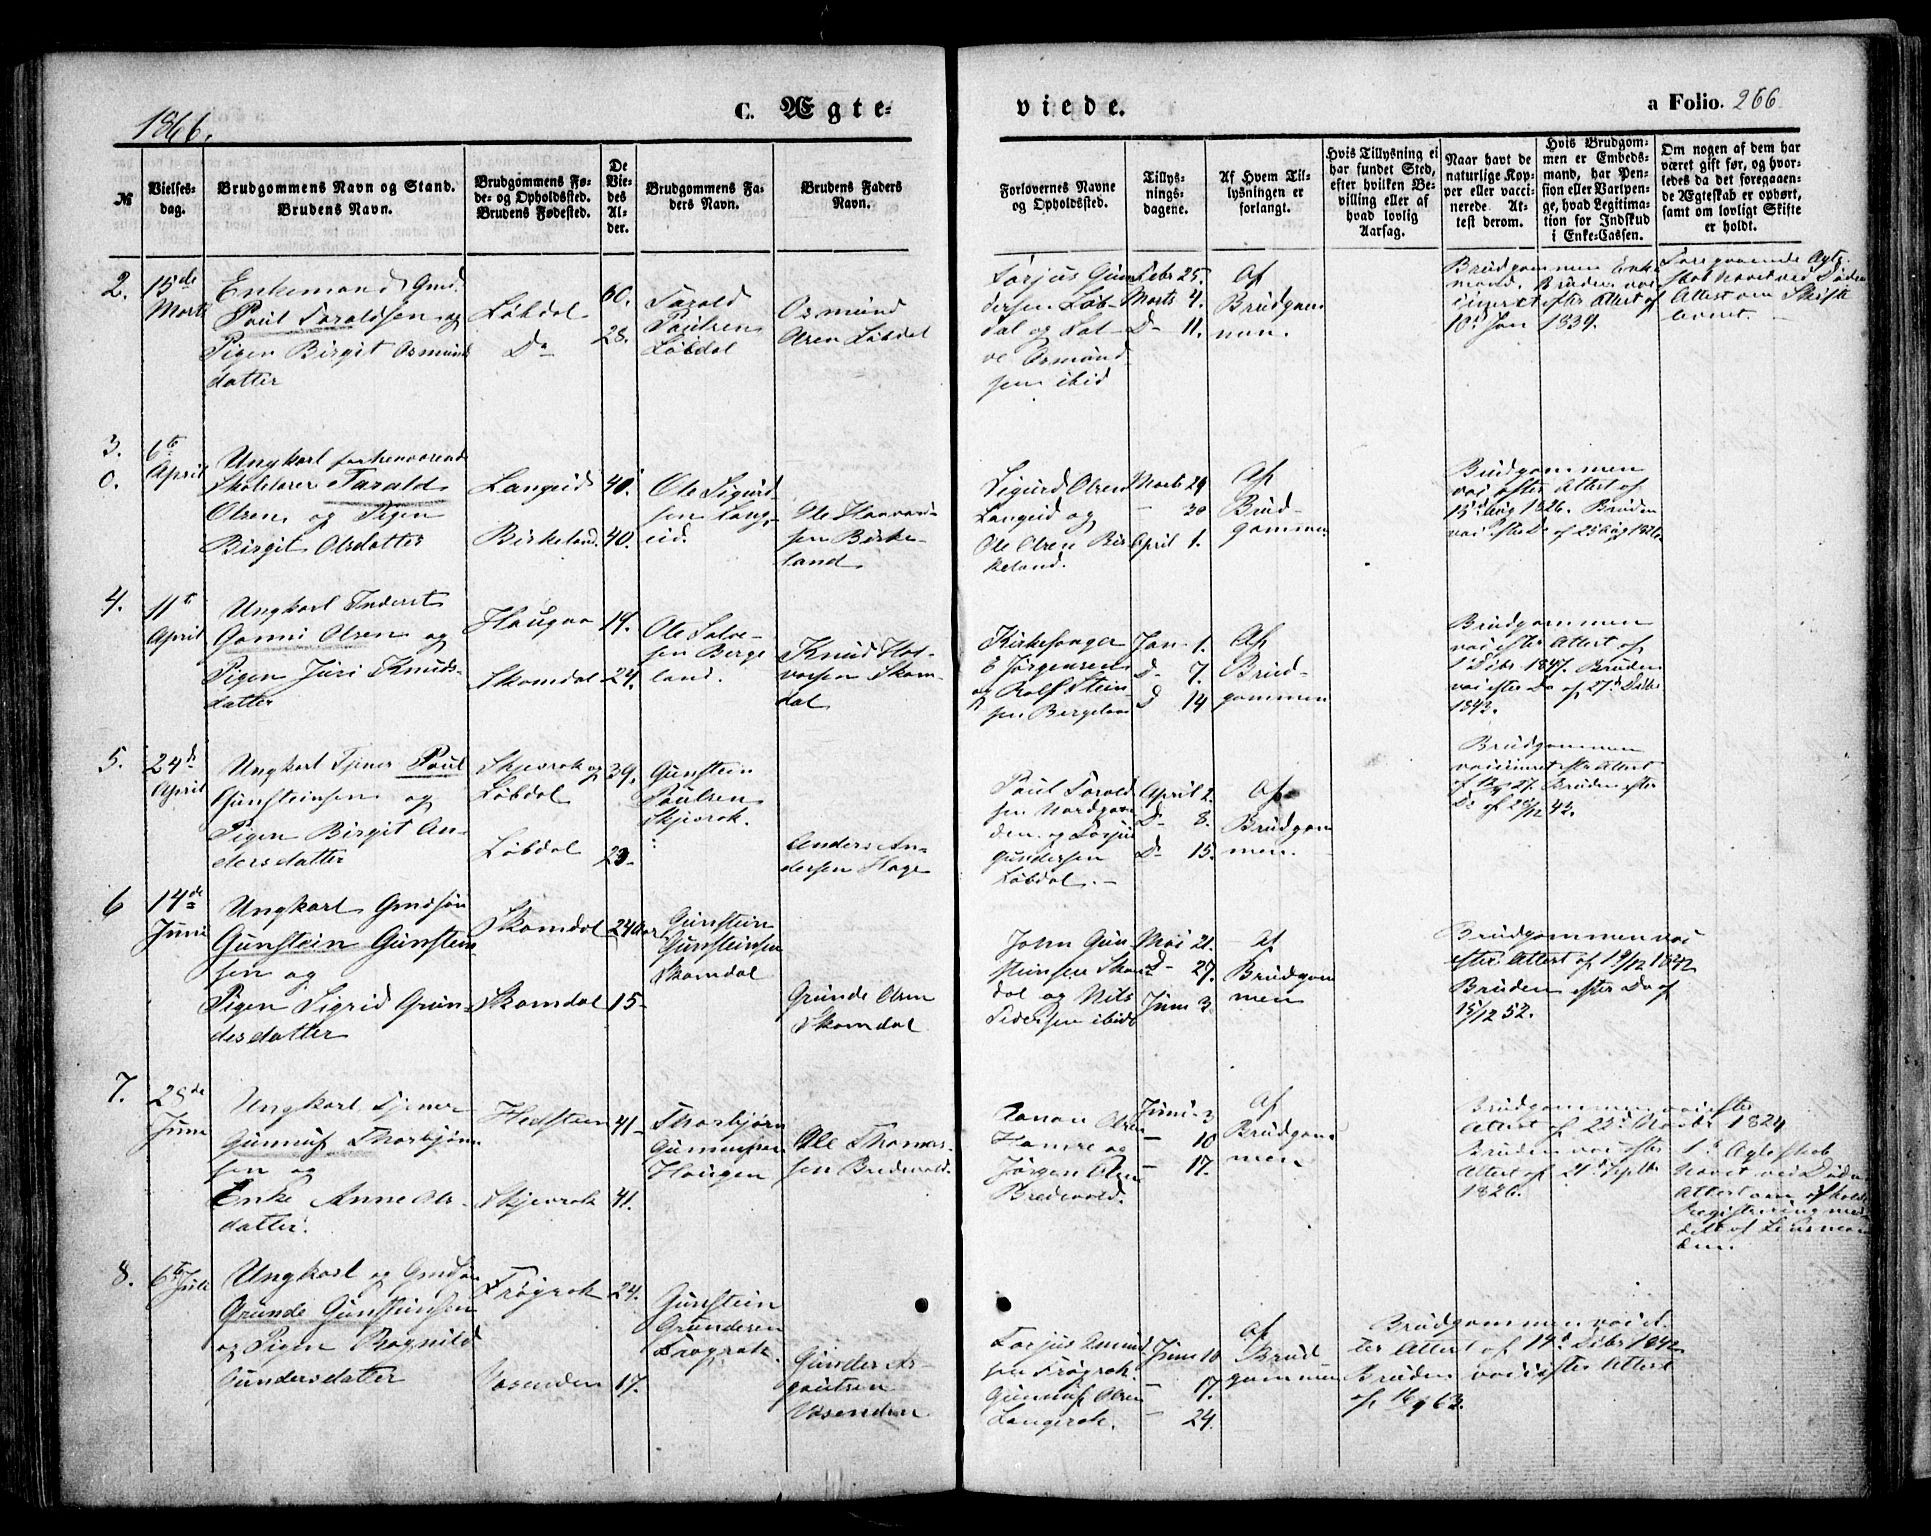 1866.
C. Ægte-
viede.
a Folio. 266
№
Vielses-
dag.
Brudgommens Navn og Stand.
Brudens Navn.
Brudgommens Fø-
de- og Opholdssted.
Brudens Fødested.
De
Vie-
des
Al-
der.
Brudgommens Fa-
ders Navn.
Brudens Faders
Navn.
Forlovernes Navne
og Opholdssted.
Tillys-
nings-
dagene.
Af Hvem Til-
lysningen er
forlangt.
Hvis Tillysning ei
har fundet Sted,
efter hvilken Be-
villing eller af
hvad lovlig
Aarsag.
Naar havt de
naturlige Kop-
per eller vacci-
nerede. At-
test derom.
Hvis Brudgom-
men er Embeds-
mand, har Pen-
sion eller Vartpen-
ge, hvad Legitima-
tion for Indskud
i Enke-Cassen.
Om nogen af dem har
været gift før, og hvor-
ledes da det foregaaen-
de Ægteskab er ophørt,
samt om lovligt Skifte
er holdt.
2.
15de
Marts
Enkemand Gmd.
Paul Taraldsen og
Pigen Birgit Osmunds
datter
Løbdal
Do
60.
28.
Tarald
Paulsen
Løbdal
Osmund
Aren Løbdal
Torjus Gun
dersen Løb
dal og Sal
ve Osmund
sen ibid
Febr 25.
Marts 4.
D- 11.
Af
Brudgom
men.
Brudgommen Enke
mand. Bruden vac
cineret efter Attest af
10d Jan 1839.
Foregaaende Ægte
skab hævet ved Døden
Attest om Skifte
leveret. -
3.
0.
6te
April
Ungkarl forhenværende
Skolelærer Tarald
Olsen og Pigen
Birgit Olsdatter
Langeid
Birkeland.
40.
40.
Ole Sigurd
sen Lang
eid.
Ole Haavar
sen Birke-
land
Sigurd Olsen
Langeid og
Ole Olsen Bir
keland.
Marts 29
- 30
April 1.
Af
Brud-
gommen
Brudgommen
vac efter Attest af
15d Aug 1826. Bruden
vac efter Do af 25 Aug 1826.
4.
11te
April
Ungkarl Inderst
Gonni Olsen og
Pigen Juri Knuds-
datter
Haugaa
Skomdal
19.
24.
Ole Salve-
sen Berge
land.
Knud Hal-
vorsen Skom
dal
Kirkesanger
E Jørgensen
og Rolf Stein
sen Bergeland
Jan. 1.
D- 7.
D 14
Af
Brud-
gommen
Brudgommen
vac efter Attest af
1 Dcbr 1847. Bruden
vac efter Do af 27d Dcbr
1842.
5.
24d
April
Ungkarl Tjener Paul
Gunsteinsen og
Pigen Birgit An-
dersdatter
Skjevrak og
Løbdal
Løbdal
39.
23-
Gunstein
Paulsen
Skjevrak.
Anders An-
dersen Hage
Paul Tarald
sen Nordgar
den og Torjus
Gundersen
Løbdal. -
April 2.
D- 8.
D- 15.
Af
Brudgom
men.
Brudgommen
vaccineret efter Attest
af 12/9 27. Bruden efter
Do af 20/12 42.
6
14de
Juni
Ungkarl Gmdsøn
Gunstein Gunstein
sen og
Pigen Sigrid Grun-
desdatter
Skomdal
Skomdal
24 aar
15-
Gunstein
Gunsteinsen
Skomdal
Grunde Olsen
Skomdal
John Gun
steinsen Skom
dal og Nils
Pedersen ibid
Mai 21.
D- 27.
Juni 3
Af
Brudgom
men
Brudgommen vac
efter Attest af 19/12 1842
Bruden efter Do af
15/12 52.
7.
28de
Juni
Ungkarl Tjener
Gunnuf Thorbjørn
sen og
Enke Anne Ols-
datter.
Hedsteen
Skjevrak
41-
41.
Thorbjørn
Gunnufsen
Haugen
Ole Thomas-
sen Bredevold.
Olsen
Hamre og
Jørgen Olsen
Bredevold.
Juni 3
- 10
- 17.
Af
Brudgom
men
Brudgommen vac efter
Attest af 22d 1824
Bruden vac efter
Attest af 21d Septbr
1826.
1d Ægteskab
hævet ved Døden
Attest om afholdt
Registrering med
delt af Lensman
den.
8.
6te
Juli
Ungkarl og Gmdsøn
Grunde Gunsteinsen
og Pigen Ragnild
Gundersdatter
Frøyrak
Vasenden
24.
17.
Gunstein
Grundesen
Frøyrak.
Gunder As-
gautsen
Vasenden
Torjus Aamund
sen Frøyrak.
Gunnuf Olsen
Langerak.
Juni 10
- 17.
- 24.
Af
Brud-
gommen
Brudgommen vac ef-
ter Attest af 14d Dcbr 1842
Bruden vac efter Attest
af 16/9 63.